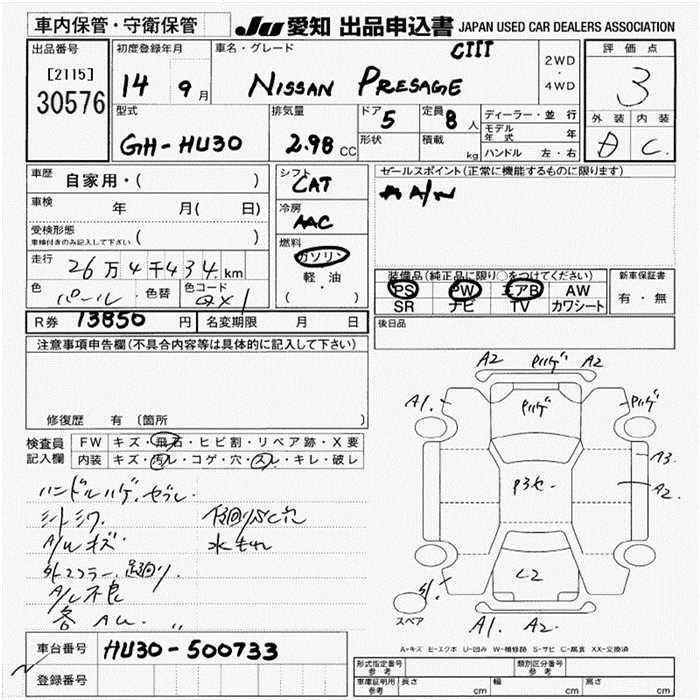 車内保管・守衛保管
JU 愛知 出品申込書 JAPAN USED CAR DEALERS ASSOCIATION
出品番号
[2115]
30576
初度登録年月
14 9月
車名・グレード
CIII
NISSAN PRESAGE
2WD
・
4WD
評価点
3
外装 内装
A C.
型式
GH-HU30
排気量
2.98 CC
ドア
5
定員
8人
形状
積載
kg
ディーラー・並行
モデル年式 年
ハンドル 左・右
車歴
自家用・( )
車検
年 月( 日)
受検形態
車検付きのみ記入して下さい ( )
走行
26万4千434km
色
パール
色替
色コード
QX1
シフト
CAT
冷房
AAC
燃料
ガソリン
軽・油
( )
セールスポイント(正常に機能するものに限ります)
A/W
装備品(純正品に限り○をつけてください)
PS PW エアB AW
SR ナビ TV カワシート
新車保証書
有・無
R券 13850円
名変期限 月 日
後日品
注意事項申告欄(不具合内容等は具体的に記入して下さい)
修復歴 有(箇所 )
検査員記入欄
FW キズ・飛石・ヒビ割・リペア跡・X要
内装 キズ・汚レ・コゲ・穴・スレ・キレ・破レ
ハンドルハゲ.
シートシワ
A/Wキズ
A/C不良
A2 Pハゲ A2
A1.
Pハゲ
Pハゲ
A3.
A2.
C2
外.
スペア
A1. A2.
A-キズ E-エクボ U-凹み W-補修跡 S-サビ C-腐食 XX-交換済
車台番号 HU30-500733
登録番号
形式指定番号
参考
類別区分番号
参考
車庫証明用
参考
長さ cm 幅 cm 高さ cm